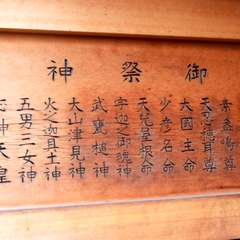 御祭神
素盞嗚尊
天忍穂耳尊
大國主命
少彦名命
天兒屋根命
宇迦之御魂神
武甕槌神
大山津見神
火之迦具土神
五男三女神
神天皇